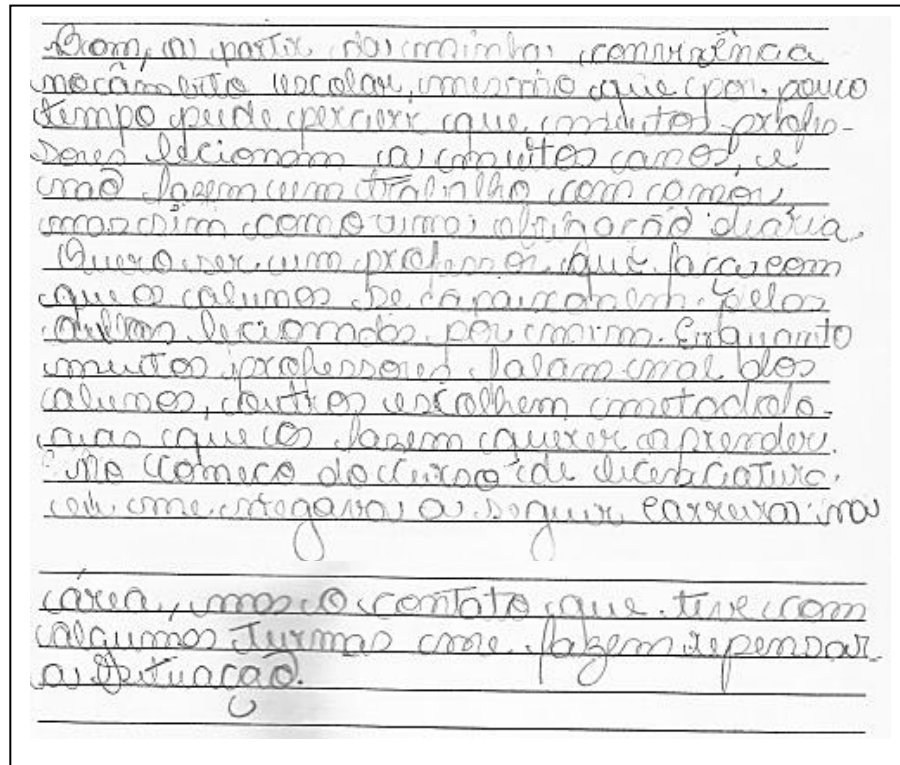 Bom, a partir da minha convivência
no âmbito escolar, mesmo que por pouco
tempo pude perceri que muitos profes-
sores lecionam a muitos anos, e
não fazem um trabalho com amor
mas sim como uma obrigação diária.
Quero ser um professor que faça com
que os alunos se apaixonem pelos
aulas lecionadas por mim. Enquanto
muitos professores falam mal dos
alunos, outros escolhem metodolo-
gias que os fazem querer aprender.
No começo do curso de licenciatura
eu me negava a seguir carreira na
área, mas o contato que tive com
algumas turmas me fazem repensar
a situação.